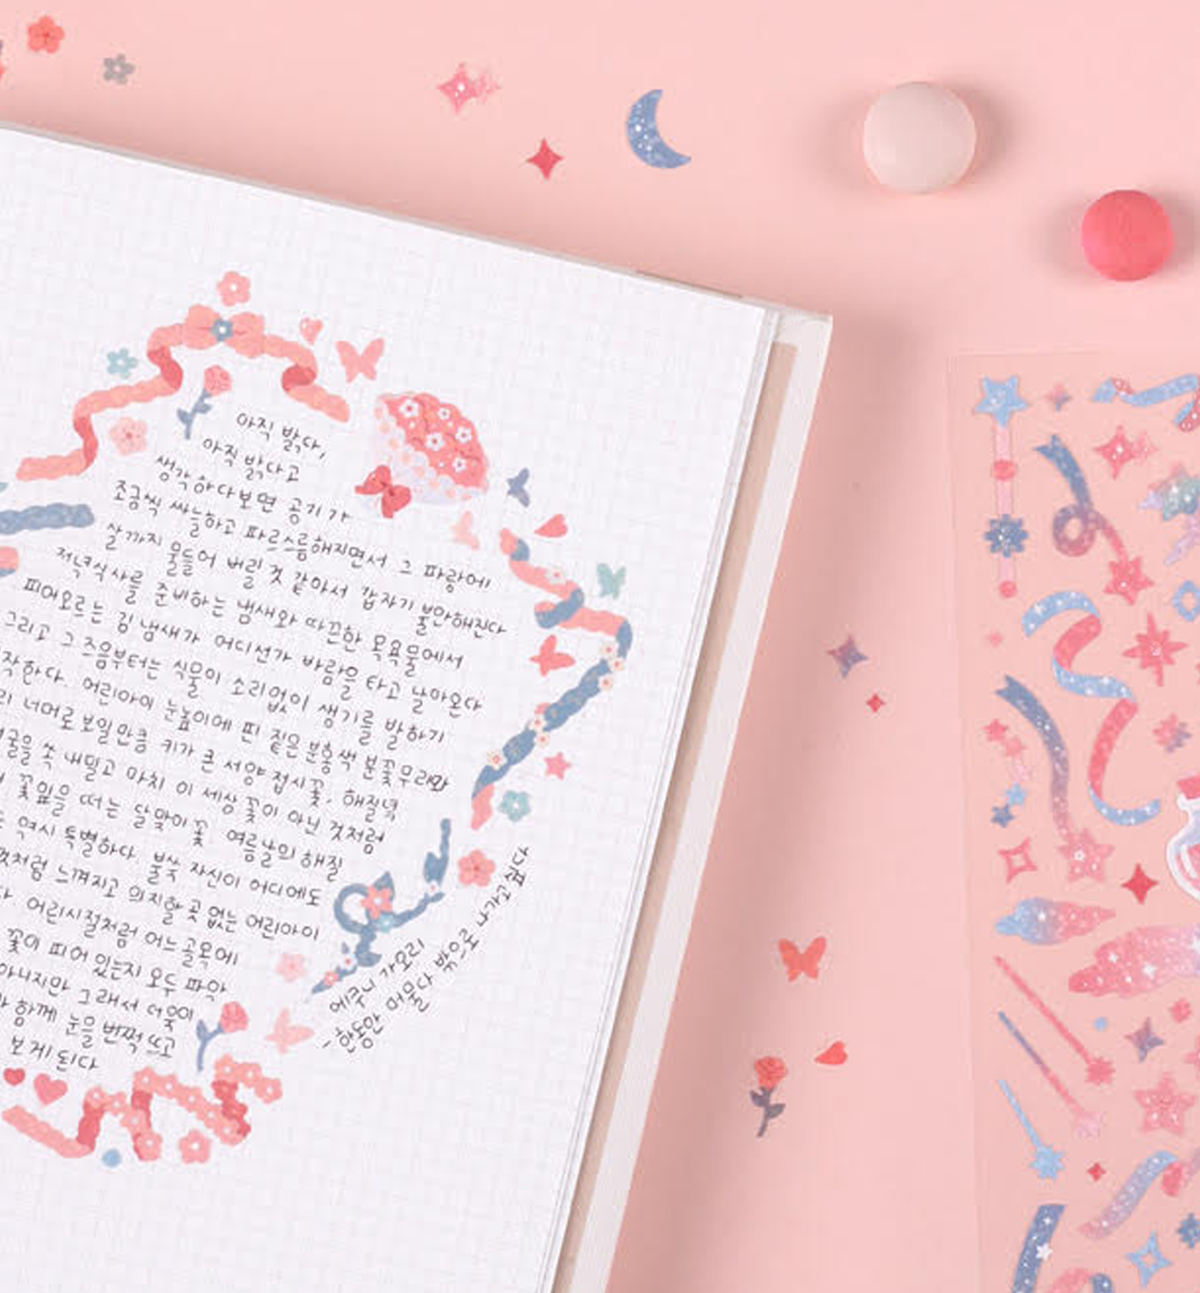 아직 밝다,
아직 밝다고
생각하다보면 공기가
조금씩 싸늘하고 파르스름해지면서 그 파랑에
살까지 물들어 버릴 것 같아서 갑자기 불안해진다
저녁식사를 준비하는 냄새와 따끈한 목욕물에서
피어오르는 김 냄새가 어디선가 바람을 타고 날아온다
그리고 그 즈음부터는 식물이 소리없이 생기를 발하기
작한다. 어린아이 눈높이에 핀 짙은 분홍색 분꽃무리와
너머로 보일만큼 키가 큰 서양 접시꽃, 해질녘
쏙 내밀고 마치 이 세상 꽃이 아닌 것처럼
꽃잎을 떠는 달맞이꽃 여름날의 해질
역시 특별하다 불쑥 자신이 어디에도
것처럼 느껴지고 의지할 곳 없는 어린아이
어린시절처럼 어느 골목에
꽃이 피어 있는지 모두 파악
아니지만 그래서 더욱이
함께 눈을 번쩍 뜨고
보게 된다
에쿠니 가오리
, 한동안 머물다 밖으로 나가고 싶다